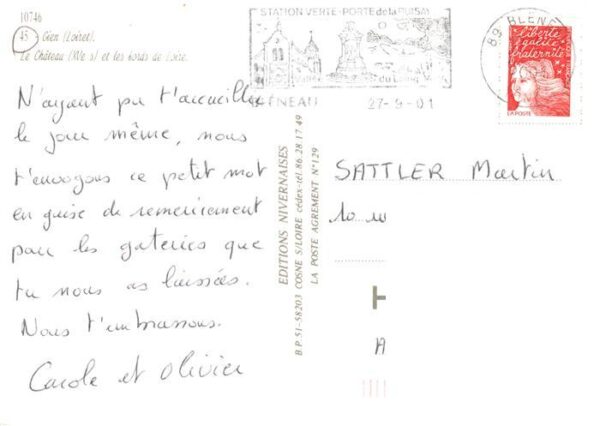 10746
45 - Gien (Loiret).
Le Château (XVe s) et les bords de Loire.
N'ayant pu t'accueillir
le jour même, nous
t'envoyons ce petit mot
en guise de remerciement
pour les gateries que
tu nous as laissées.
Nous t'embrassons.
Carole et Olivier
EDITIONS NIVERNAISES
B.P 51-58203 COSNE S/LOIRE cédex-tél.86.28.17.49
LA POSTE AGREMENT N°129
STATION VERTE-PORTE de la PUISAY
BLENEAU 27-9-01
89 BLENE
Liberté
égalité
fraternité
LA POSTE
SATTLER Martin
10
A